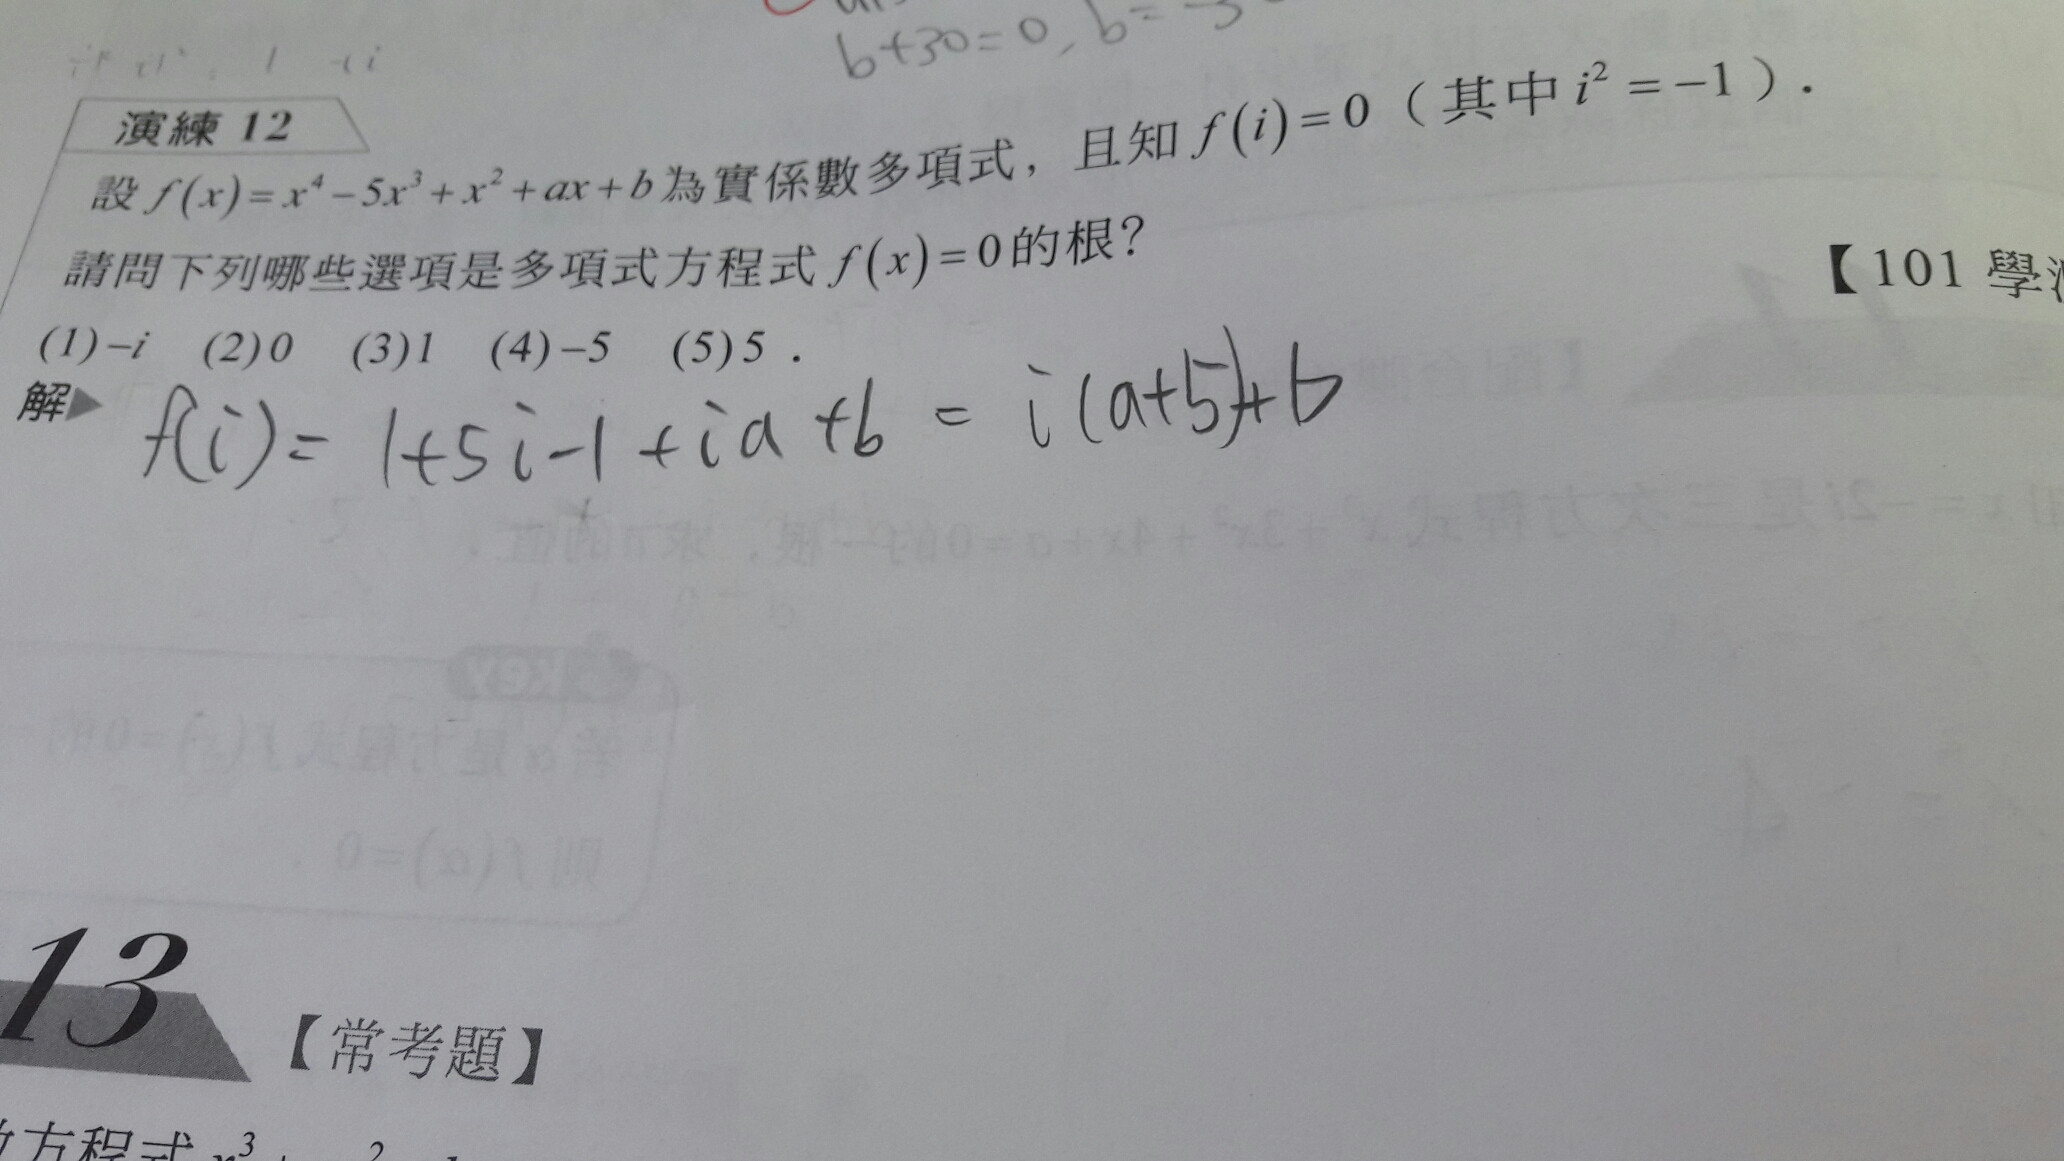 b+30=0, b=-3
演練 12
設 f(x)=x⁴-5x³+x²+ax+b 為實係數多項式，且知 f(i)=0（其中 i²=-1）.
請問下列哪些選項是多項式方程式 f(x)=0 的根？
【101 學
(1)-i (2)0 (3)1 (4)-5 (5)5 .
解▶ f(i)= 1+5i-1+ia+b = i(a+5)+b
13
【常考題】
方程式